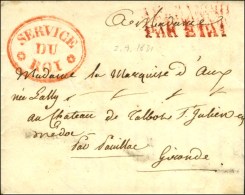 A Madame
SERVICE
DU
ROI
Madame la Marquise d'Aux
née Lally
au Château de Talbot St Julien en
médoc
Par Pauillac
Gironde